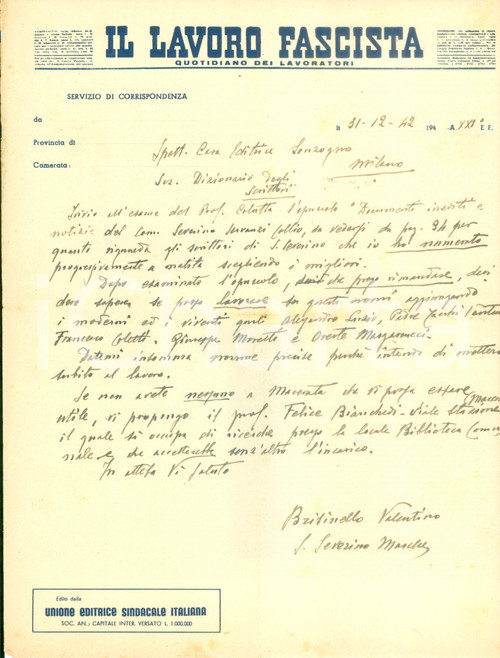 IL LAVORO FASCISTA
QUOTIDIANO DEI LAVORATORI
SERVIZIO DI CORRISPONDENZA
da
Provincia di
Camerata:
li 31-12-42 194 -A. XXI° E F.
Spett. Casa Editrice Sonzogno
Milano
Sez. Dizionario degli
Scrittori
Invio all'esame del Prof. l'opuscolo "Documenti inediti e
notizie del Com. Severino Servanzi Collio, da vedersi da pag. 34 per
quanto riguarda gli scrittori di S. Severino che io ho numerato
progressivamente a matita scegliendo i migliori.
Dopo esaminato l'opuscolo, prego rimandare, desi
dero sapere se posso lavorare su questi nomi aggiungendo
i moderni ed i viventi quali Alejandro Luzio, Padre
Francesco Coletti, Giuseppe Moretto e Oreste
Datemi insomma norme precise perché intendo di mettermi
subito al lavoro.
Se non avete nessuno a Macerata che vi possa essere
utile, vi propongo il prof. Felice Bianchedi - Viale Stazione (Macerata)
il quale si occupa di ricerche presso la locale Biblioteca Comu
nale e che accetterebbe senz'altro l'incarico.
In attesa Vi saluto
Valentino
S. Severino Marche
Edito dalla
UNIONE EDITRICE SINDACALE ITALIANA
SOC. AN.: CAPITALE INTER. VERSATO L. 1.000.000